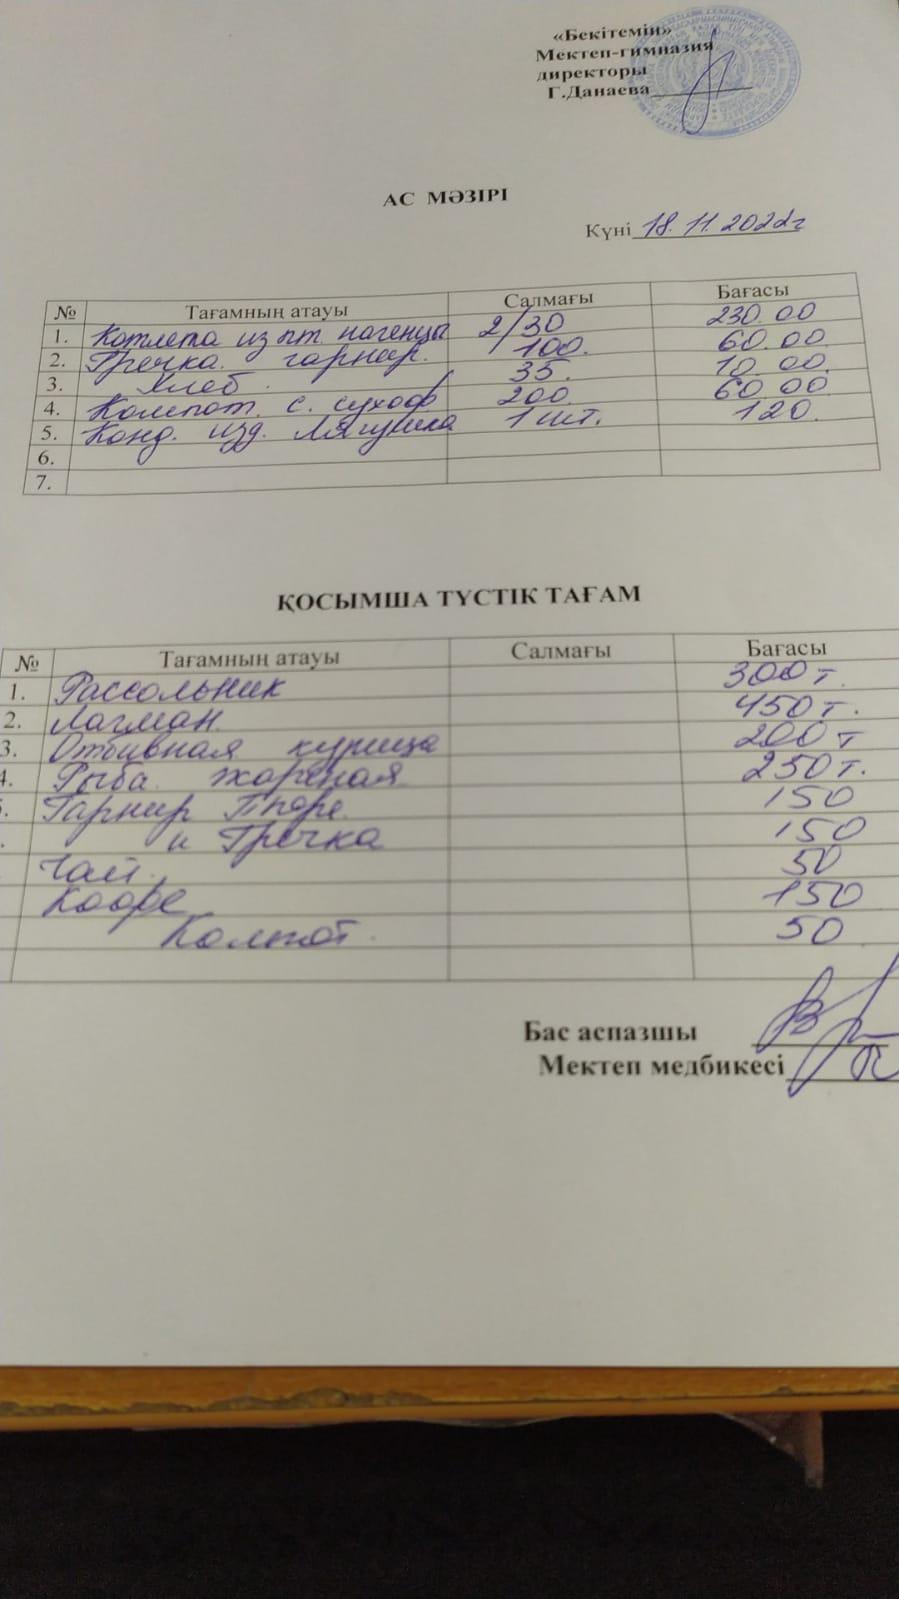 «Бекітемін»
Мектеп-гимназия
директоры
Г.Данаева
АС МӘЗІРІ
Күні 18.11.2022г
№ Тағамның атауы Салмағы Бағасы
1. Котлета из пт. 2/30 230.00
2. Гречка. гарнир. 100. 60.00.
3. Хлеб. 35. 10.00.
4. Компот. с. сухоф 200. 60.00
5. Конд. изд. Лягушка 1 шт. 120.
6.
7.
ҚОСЫМША ТҮСТІК ТАҒАМ
№ Тағамның атауы Салмағы Бағасы
1. Рассольник 300 т.
2. Лагман. 450 т.
3. Отбивная курица 200 т
4. Рыба. жареная 250 т.
Гарнир Пюре. 150
и Гречка 150
Чай. 50
Кофе 150
Компот. 50
Бас аспазшы
Мектеп медбикесі